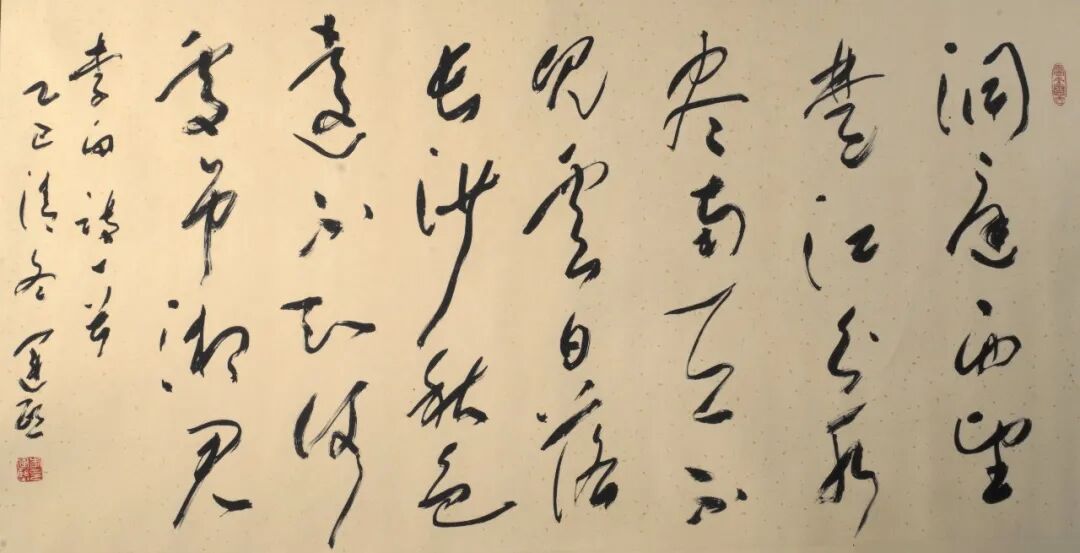 洞庭西望
楚江分水
尽南天不
见雲日落
长沙秋色
遠不知何
處吊湘君
李白詩一首
乙巳清冬